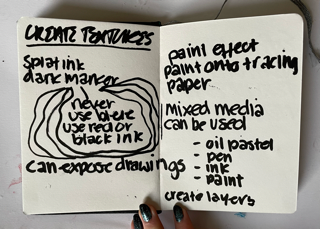 CREATE TEXTURES
Splat ink
dark marker
never
use biro
use red or
black ink
can expose drawings
paint effect
paint onto tracing
paper
mixed media
can be used
- oil pastel
- pen
- ink
- paint
create layers